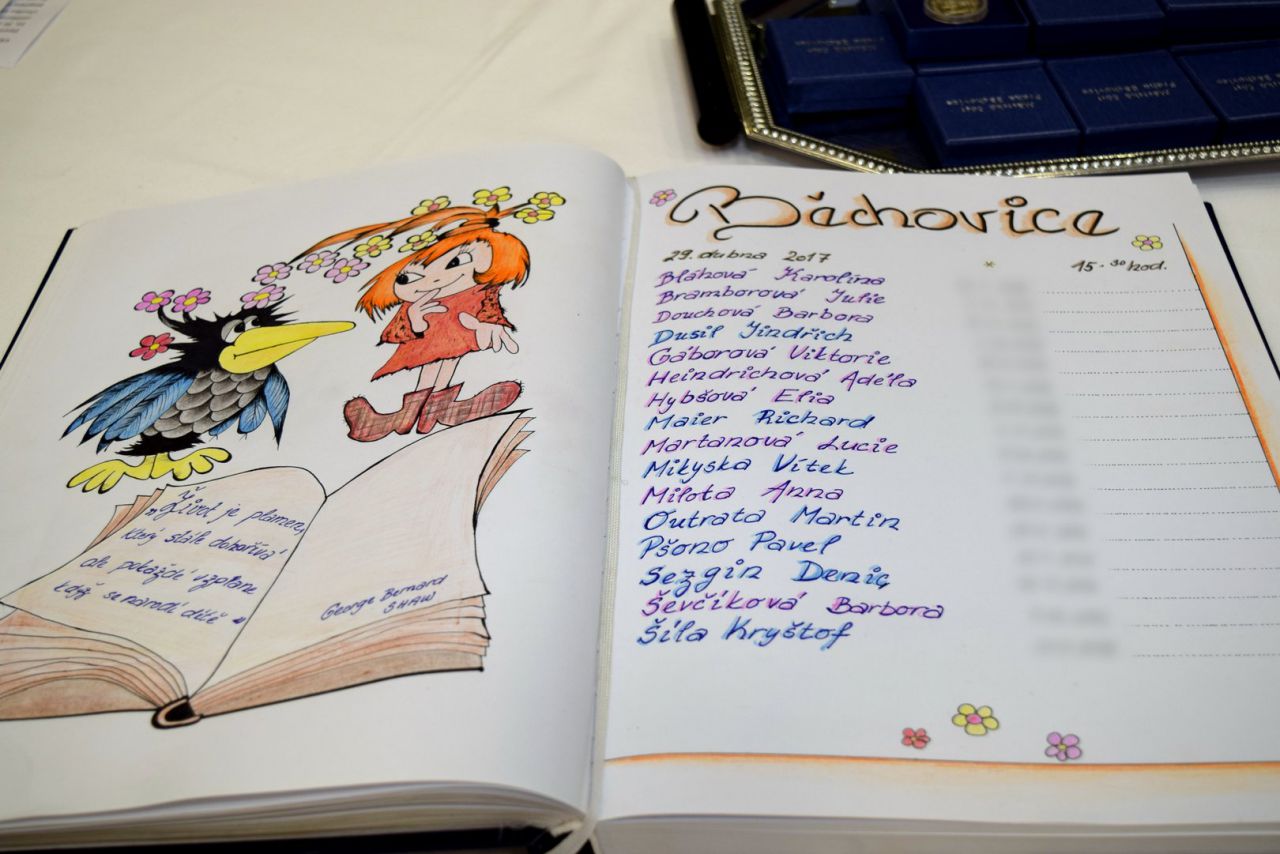 „Život je plamen,
který stále dohořívá
ale pokaždé vzplane
když se narodí dítě"
George Bernard
SHAW
Běchovice
29. dubna 2017 * 15.30 hod.
Bláhová Karolína
Bramborová Julie
Douchová Barbora
Dusil Jindřich
Gáborová Viktorie
Heindrichová Adéla
Hybšová Ella
Maier Richard
Martanová Lucie
Mikyska Vítek
Milota Anna
Outrata Martin
Pšono Pavel
Sezgin Deniç
Ševčíková Barbora
Šíla Kryštof
Městská část
Praha Běchovice
Městská část
Praha Běchovice